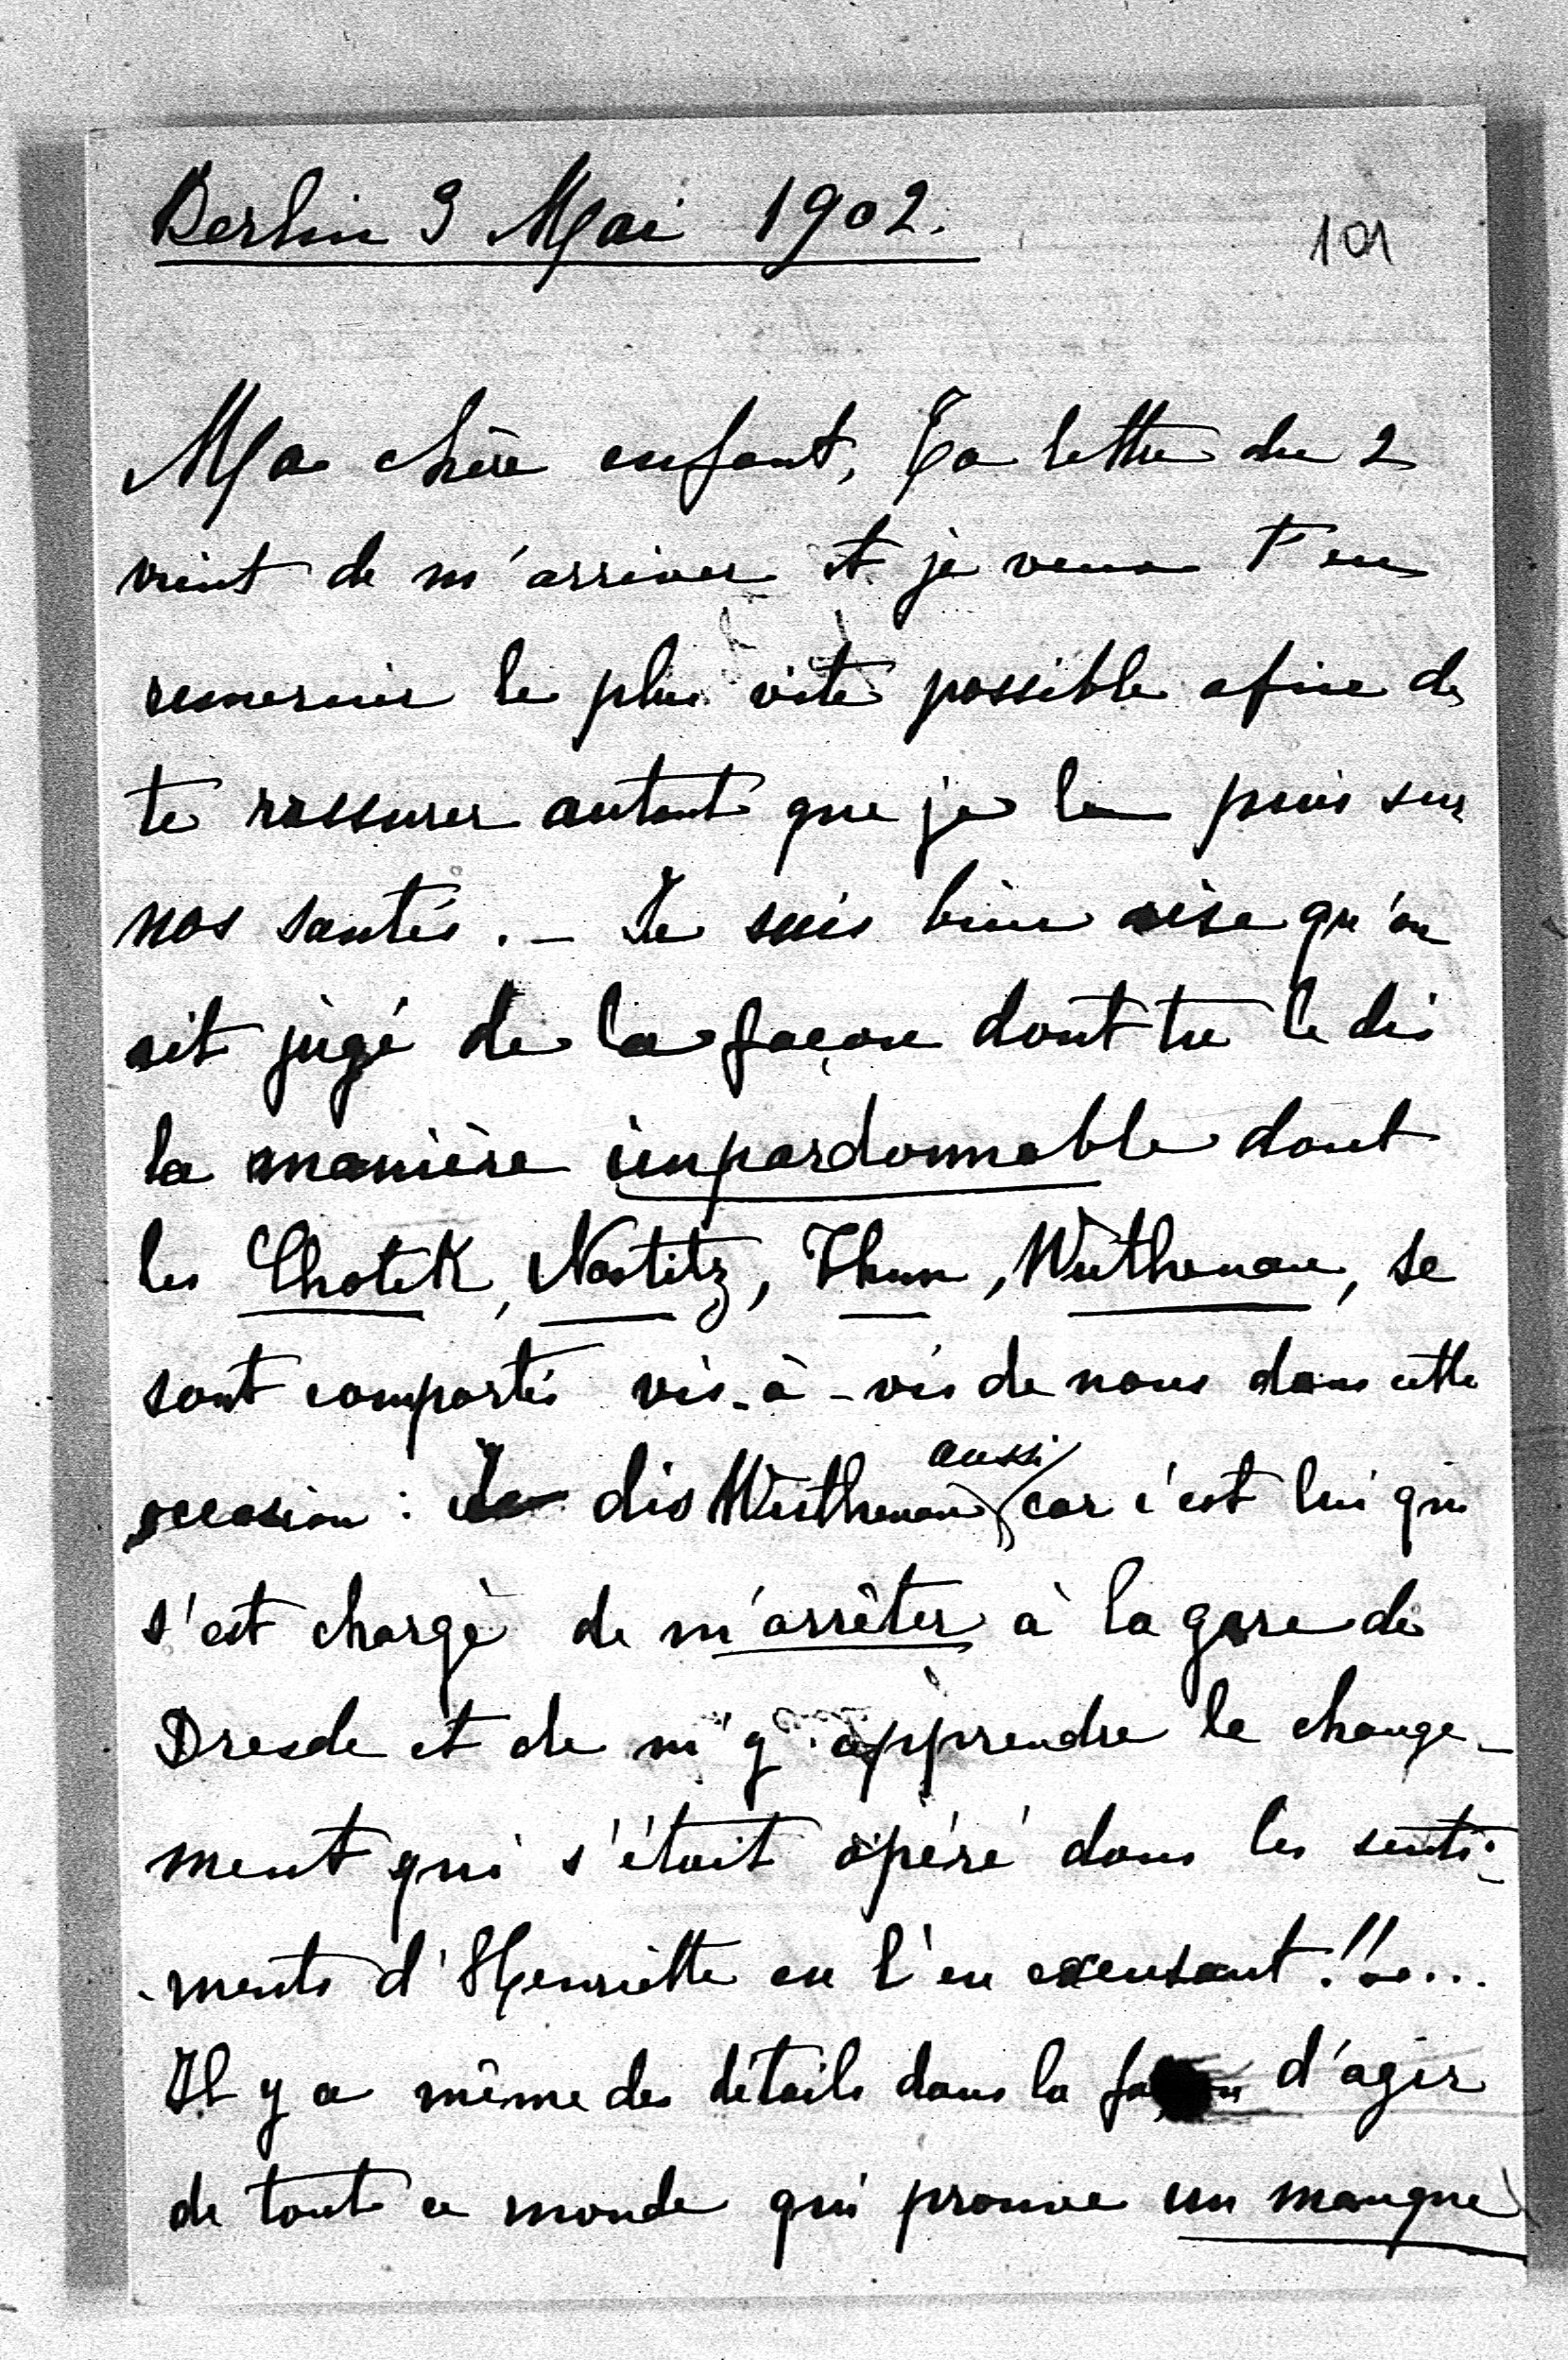 Berlin 3 Mai 1902.
101
Ma chère enfant, Ta lettre du 2
vient de m'arriver et je veux t'en
remercier le plus vite possible afin de
te rassurer autant que je le puis sur
nos santés. _ Je suis bien aise qu'on
ait jugé de la façon dont tu le dis
la manière impardonnable dont
les Chotek, Nostitz, Thun, Wuthenau, se
sont comportés vis-à-vis de nous dans cette
occasion : Je dis Wuthenau aussi car c'est lui qui
s'est chargé de m'arrêter à la gare de
Dresde et de m'y apprendre le change-
ment qui s'était opéré dans les senti-
-ments d'Henriette en l'en excusant!!...
Il y a même des détails dans la façon d'agir
de tout ce monde qui prouve un manque